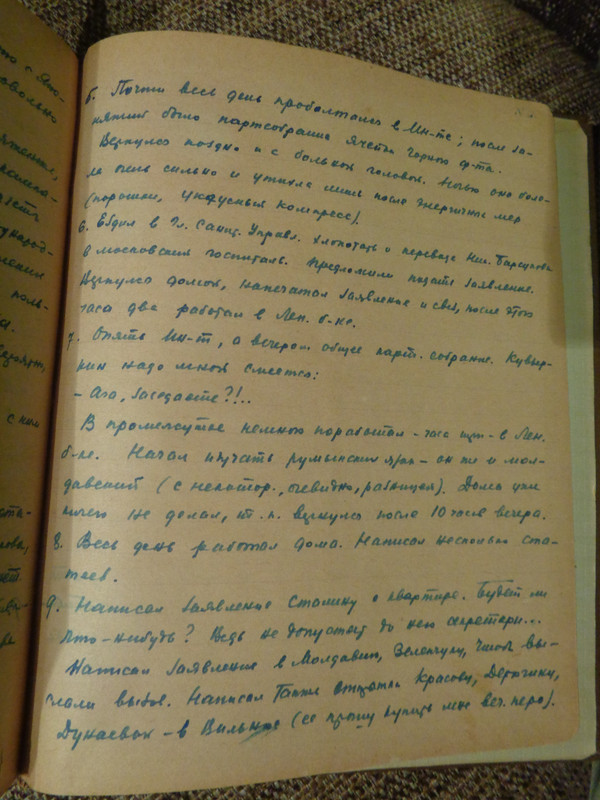 то с Япо-
5. Почти весь день проболтался в Ин-те; после за-
нятий было партсобрание ячейки горного ф-та.
Вернулся поздно и с больной головой. Ночью она боле-
ла очень сильно и утихла лишь после энергичных мер
(порошки, уксусный компресс).
6. Ездил в Гл. Санит. Управл. хлопотать о переводе Ник. Барсукова
в московский госпиталь. Предложили подать заявление.
Вернулся домой, напечатал заявление и свез, после этого
часа два работал в Лен. б-ке.
7. Опять Ин-т, а вечером общее парт. собрание. Кувыр-
кин надо мной смеется:
- Ага, заседаете?!..
В промежутке немного поработал - часа три - в Лен.
б-ке. Начал изучать румынский язык - он же и мол-
давский (с некотор., очевидно, разницей). Дома уже
ничего не делал, т. к. вернулся после 10 часов вечера.
8. Весь день работал дома. Написал несколько ста-
тей.
9. Написал заявление Сталину о квартире. Будет ли
что-нибудь? Ведь не допустят до него секретари...
Написал заявление в Молдавию, Зеленчуку, чтобы вы-
слали вызов. Написал Гале Красову,
Дунаевой - в Вильно (ее прошу купить мне веч. перо).